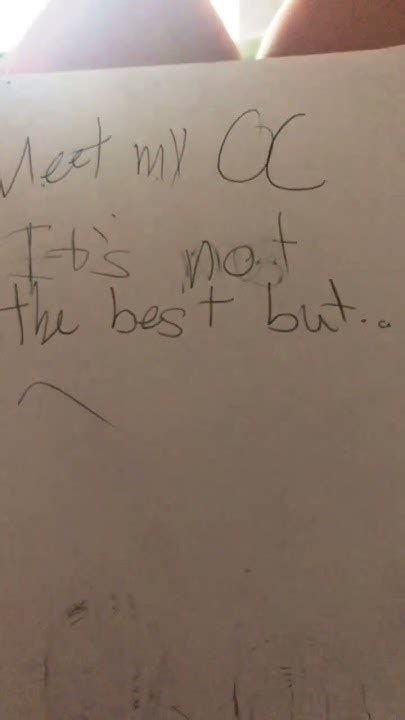 Meet my OC
It's not
the best but..